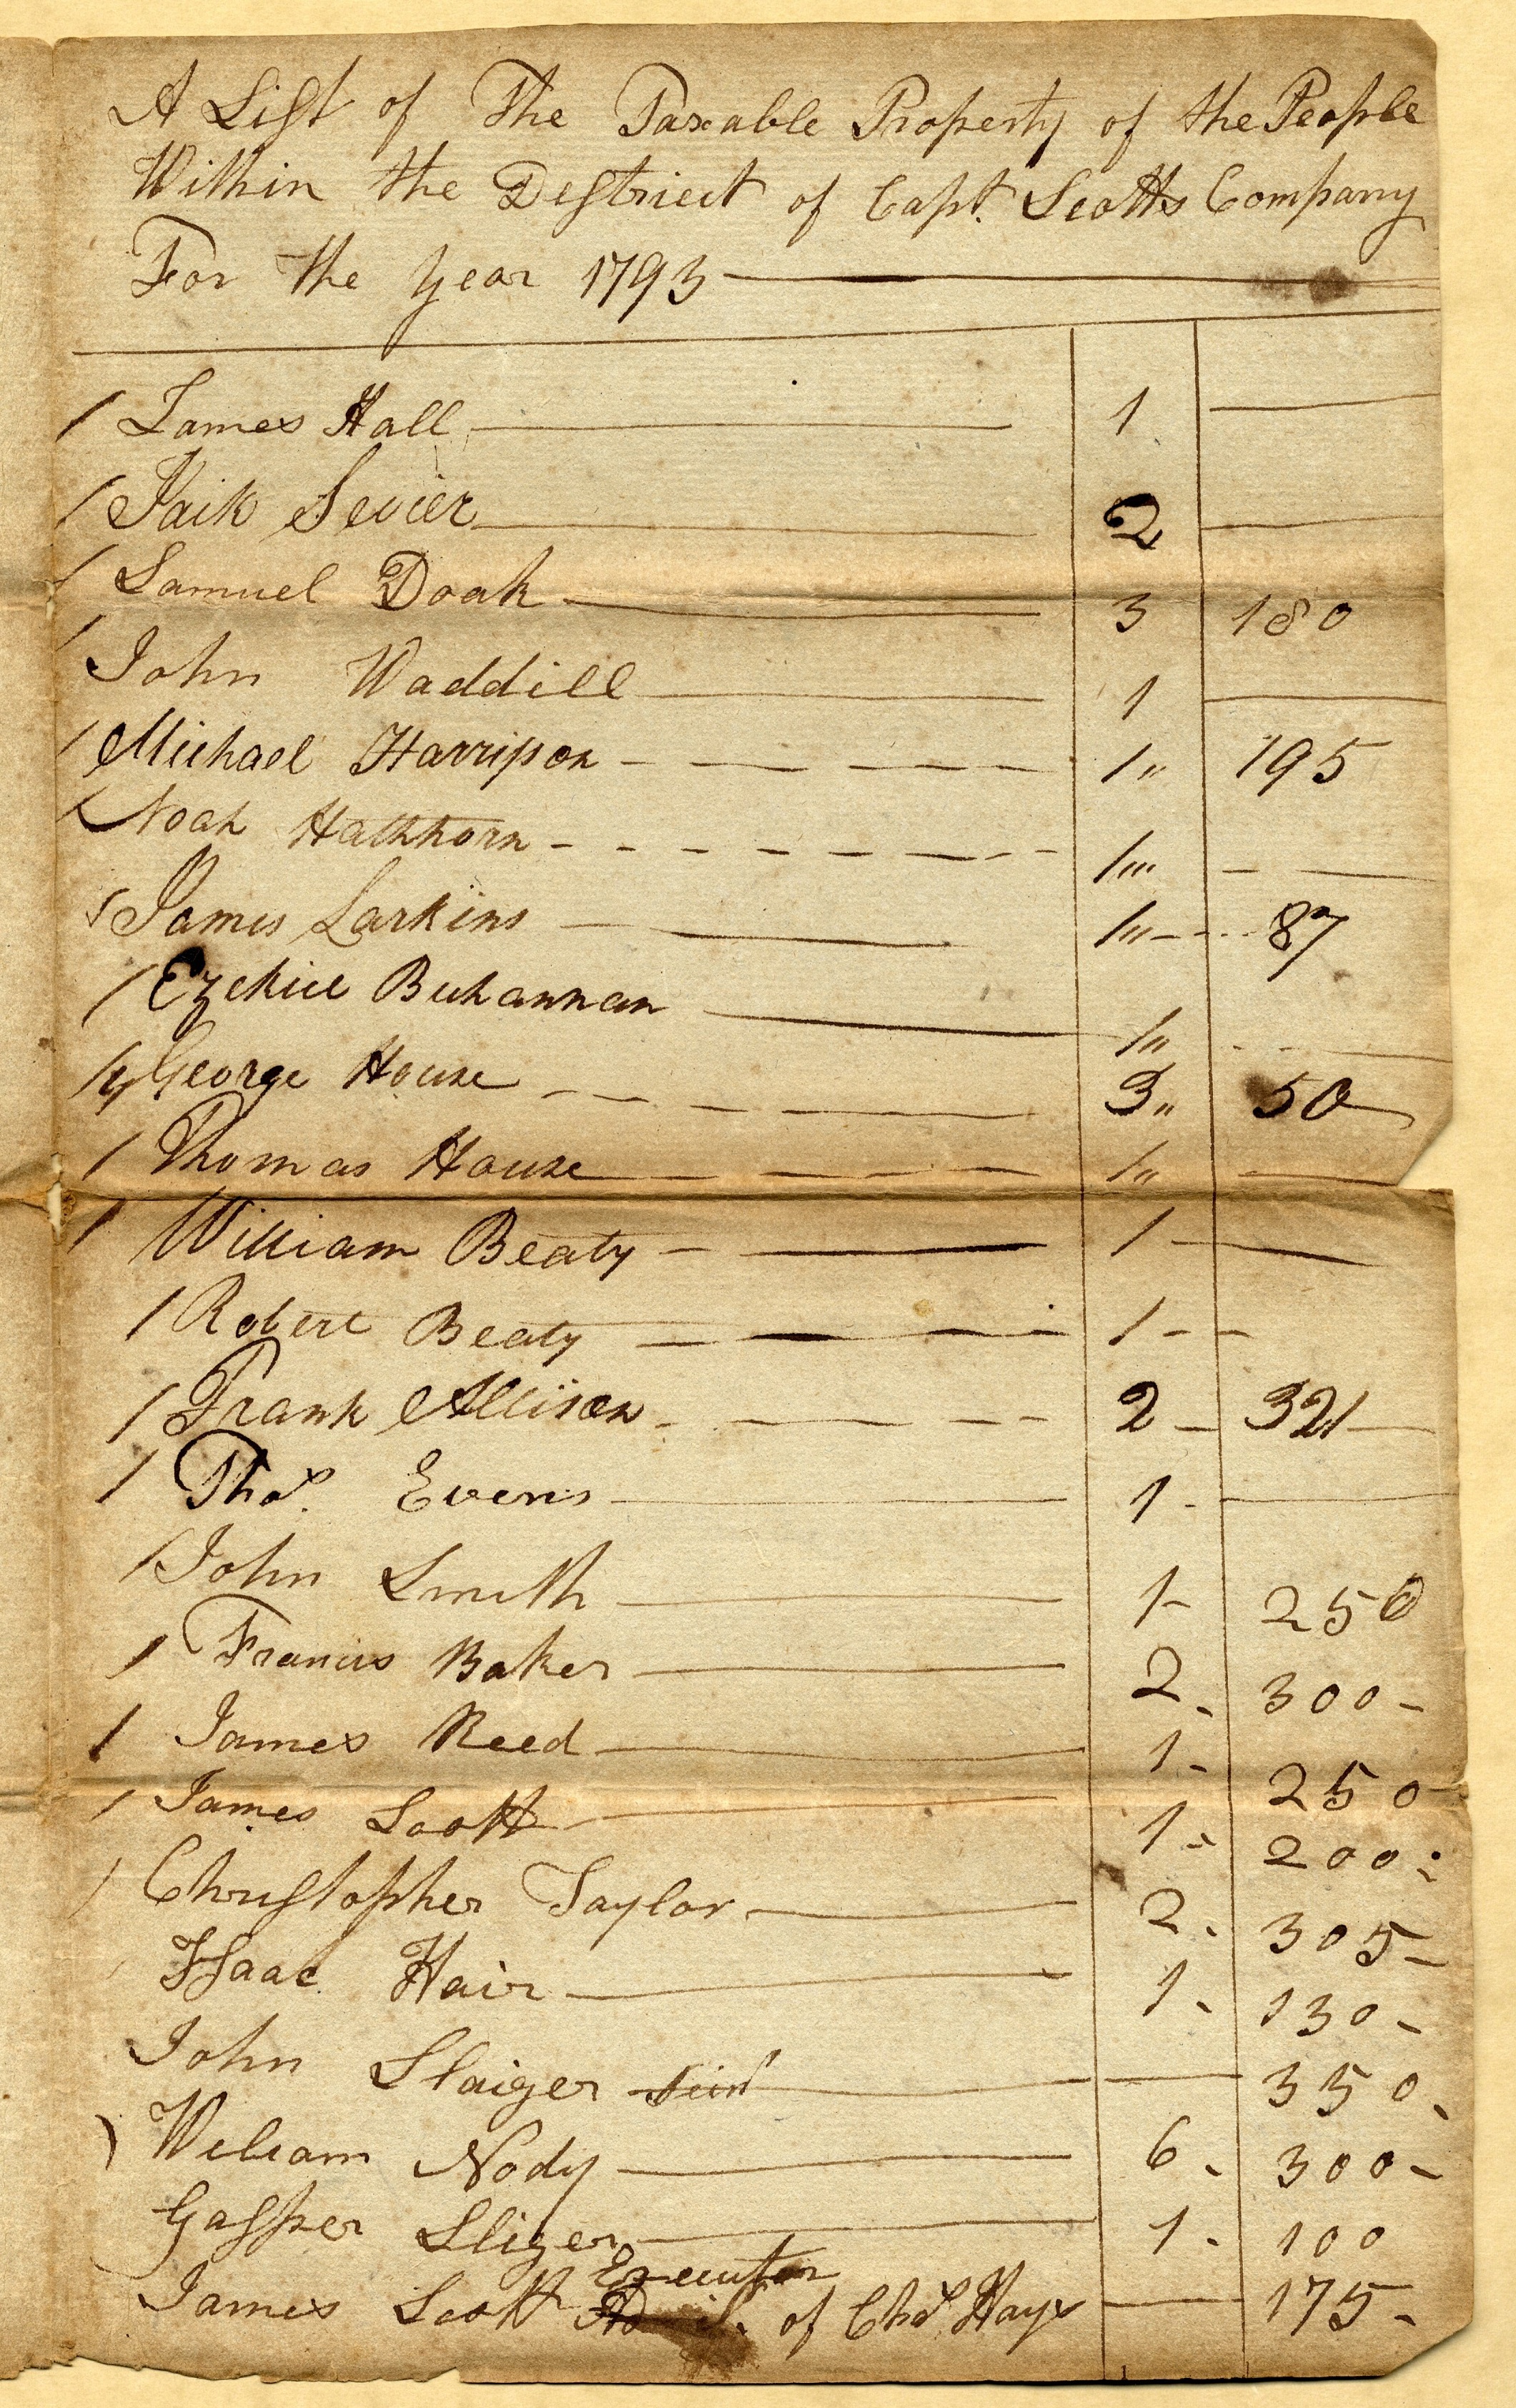 A List of The Taxable Property of the People
Within the Destrict of Capt. Scotts Company
For the Year 1793
1 James Hall 1
1 Jaik Sevier 2
1 Samuel Doak 3 180
1 John Waddill 1
1 Michael Harrison 1 195
1 Noah Hathhorn 1
1 James Larkins 1 87
1 Ezekiel Buhannan 1
1 George House 3 50
1 Thomas House 1
1 William Beaty 1
1 Robert Beaty 1
1 Frank Allison 2 321
1 Thos. Evens 1
1 John Smith 1 250
1 Francis Baker 2 300
1 James Reed 1 250
1 James Scott 1 200
1 Christopher Taylor 2 305
Isaac Hair 1 130
John Slaiger 350
William Nody 6 300
Gasper Sliger 1 100
Executor
James Scott of Chas Hays 175